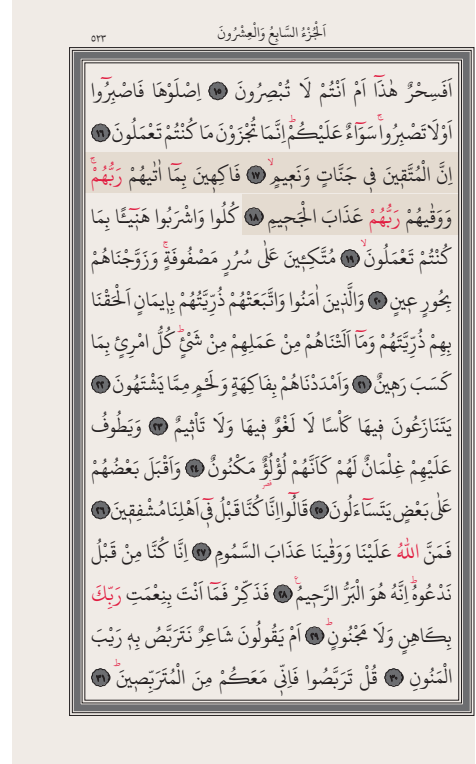 اَلْجُزْءُ السَّابِعُ وَالْعِشْرُونَ
٥٢٣
اَفَسِحْرٌ هٰذَٓا اَمْ اَنْتُمْ لَا تُبْصِرُونَ ﴿١٥﴾ اِصْلَوْهَا فَاصْبِرُٓوا
اَوْ لَا تَصْبِرُواۚ سَوَٓاءٌ عَلَيْكُمْۜ اِنَّمَا تُجْزَوْنَ مَا كُنْتُمْ تَعْمَلُونَ ﴿١٦﴾
اِنَّ الْمُتَّق۪ينَ ف۪ي جَنَّاتٍ وَنَع۪يمٍۙ ﴿١٧﴾ فَاكِه۪ينَ بِمَٓا اٰتٰيهُمْ رَبُّهُمْۚ
وَوَقٰيهُمْ رَبُّهُمْ عَذَابَ الْجَح۪يمِ ﴿١٨﴾ كُلُوا وَاشْرَبُوا هَن۪ٓيـًٔا بِمَا
كُنْتُمْ تَعْمَلُونَۙ ﴿١٩﴾ مُتَّكِـ۪ٔينَ عَلٰى سُرُرٍ مَصْفُوفَةٍۚ وَزَوَّجْنَاهُمْ
بِحُورٍ ع۪ينٍ ﴿٢٠﴾ وَالَّذ۪ينَ اٰمَنُوا وَاتَّبَعَتْهُمْ ذُرِّيَّتُهُمْ بِا۪يمَانٍ اَلْحَقْنَا
بِهِمْ ذُرِّيَّتَهُمْ وَمَٓا اَلَتْنَاهُمْ مِنْ عَمَلِهِمْ مِنْ شَيْءٍۜ كُلُّ امْرِئٍ بِمَا
كَسَبَ رَه۪ينٌ ﴿٢١﴾ وَاَمْدَدْنَاهُمْ بِفَاكِهَةٍ وَلَحْمٍ مِمَّا يَشْتَهُونَ ﴿٢٢﴾
يَتَنَازَعُونَ ف۪يهَا كَأْسًا لَا لَغْوٌ ف۪يهَا وَلَا تَأْث۪يمٌ ﴿٢٣﴾ وَيَطُوفُ
عَلَيْهِمْ غِلْمَانٌ لَهُمْ كَاَنَّهُمْ لُؤْلُؤٌ مَكْنُونٌ ﴿٢٤﴾ وَاَقْبَلَ بَعْضُهُمْ
عَلٰى بَعْضٍ يَتَسَٓاءَلُونَ ﴿٢٥﴾ قَالُٓوا اِنَّا كُنَّا قَبْلُ ف۪ٓي اَهْلِنَا مُشْفِق۪ينَ ﴿٢٦﴾
فَمَنَّ اللّٰهُ عَلَيْنَا وَوَقٰينَا عَذَابَ السَّمُومِ ﴿٢٧﴾ اِنَّا كُنَّا مِنْ قَبْلُ
نَدْعُوهُۜ اِنَّهُ هُوَ الْبَرُّ الرَّح۪يمُ۟ ﴿٢٨﴾ فَذَكِّرْ فَمَٓا اَنْتَ بِنِعْمَتِ رَبِّكَ
بِكَاهِنٍ وَلَا مَجْنُونٍۜ ﴿٢٩﴾ اَمْ يَقُولُونَ شَاعِرٌ نَتَرَبَّصُ بِه۪ رَيْبَ
الْمَنُونِ ﴿٣٠﴾ قُلْ تَرَبَّصُوا فَاِنّ۪ي مَعَكُمْ مِنَ الْمُتَرَبِّص۪ينَۜ ﴿٣١﴾